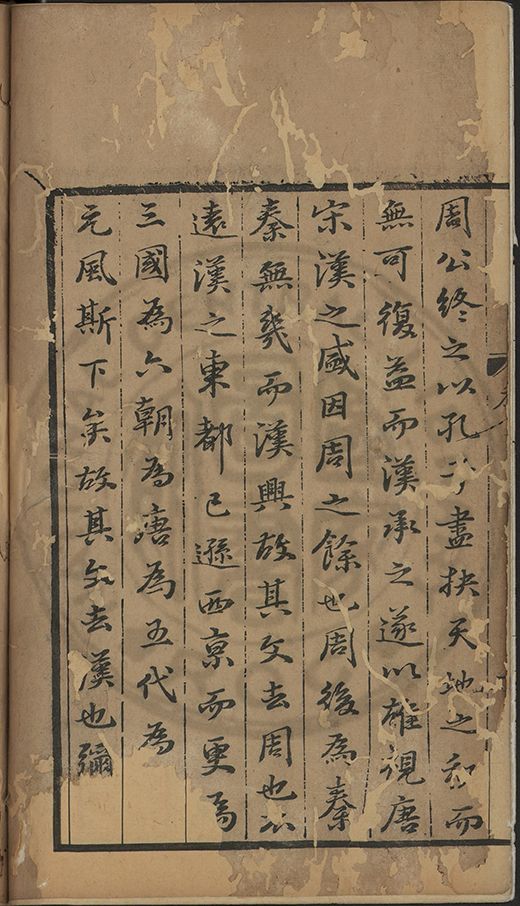 周公終之以孔子盡抉天地之和而
無可復益而漢承之遂以雄視唐
宋漢之盛因周之餘也周後為秦
秦無幾而漢興故其文去周也不
遠漢之東都已遜西京而更為
三國為六朝為唐為五代為
元風斯下矣故其文去漢也彌